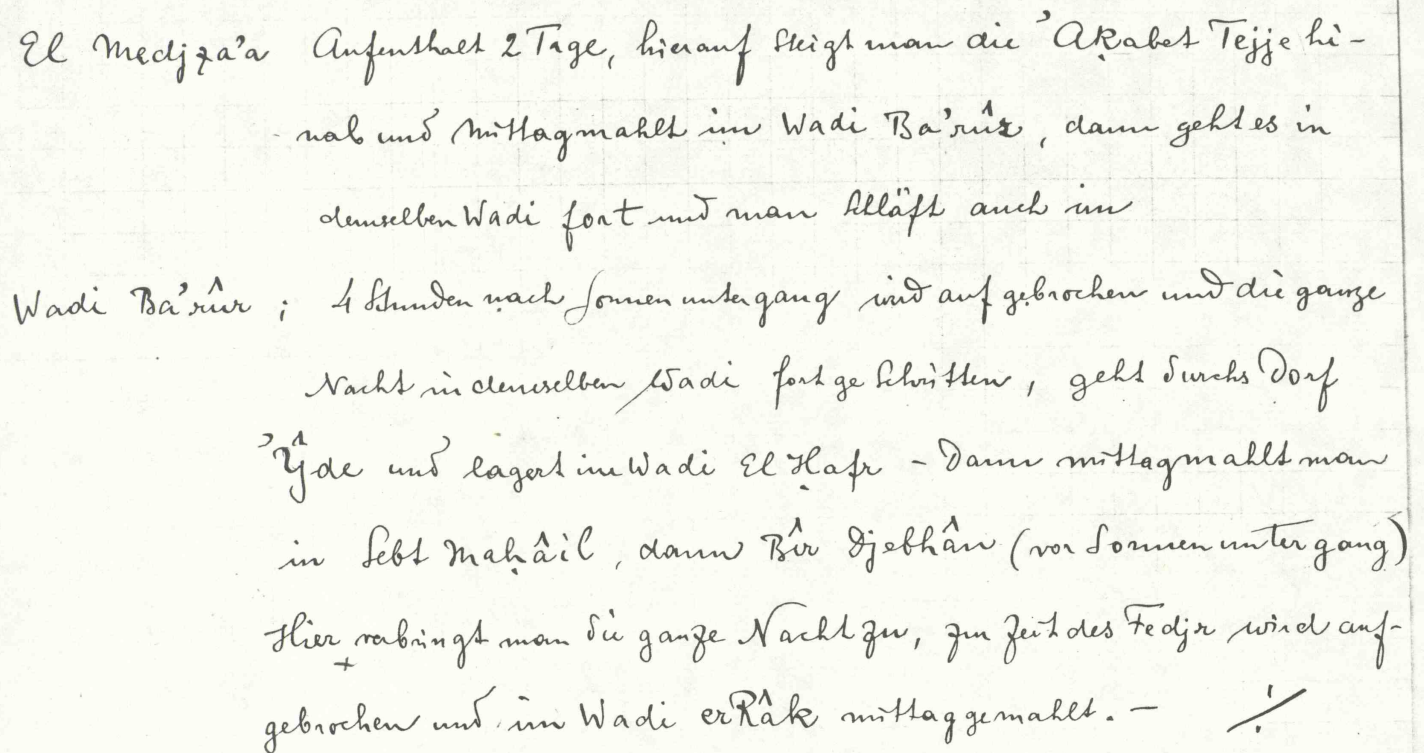 El Medjẓa'a Aufenthalt 2 Tage, hierauf steigt man die 'Aḳabet Tejje hi-
nab und mittagmahlt im Wadi Ba'rûr, dann geht es in
demselben Wadi fort und man schläft auch im
Wadi Ba'rûr ; 4 Stunden nach Sonnenuntergang wird aufgebrochen und die ganze
Nacht in demselben Wadi fortgeschritten, geht durchs Dorf
'Ŷde und lagert im Wadi El Ḥafr - Dann mittagmahlt man
in Sebt Maḥâil, dann Bîr Djebhân (vor Sonnenuntergang)
Hier verbringt man die ganze Nacht zu, zur Zeit des Fedjr wird auf-
gebrochen und im Wadi erRâk mittaggemahlt. - ./.